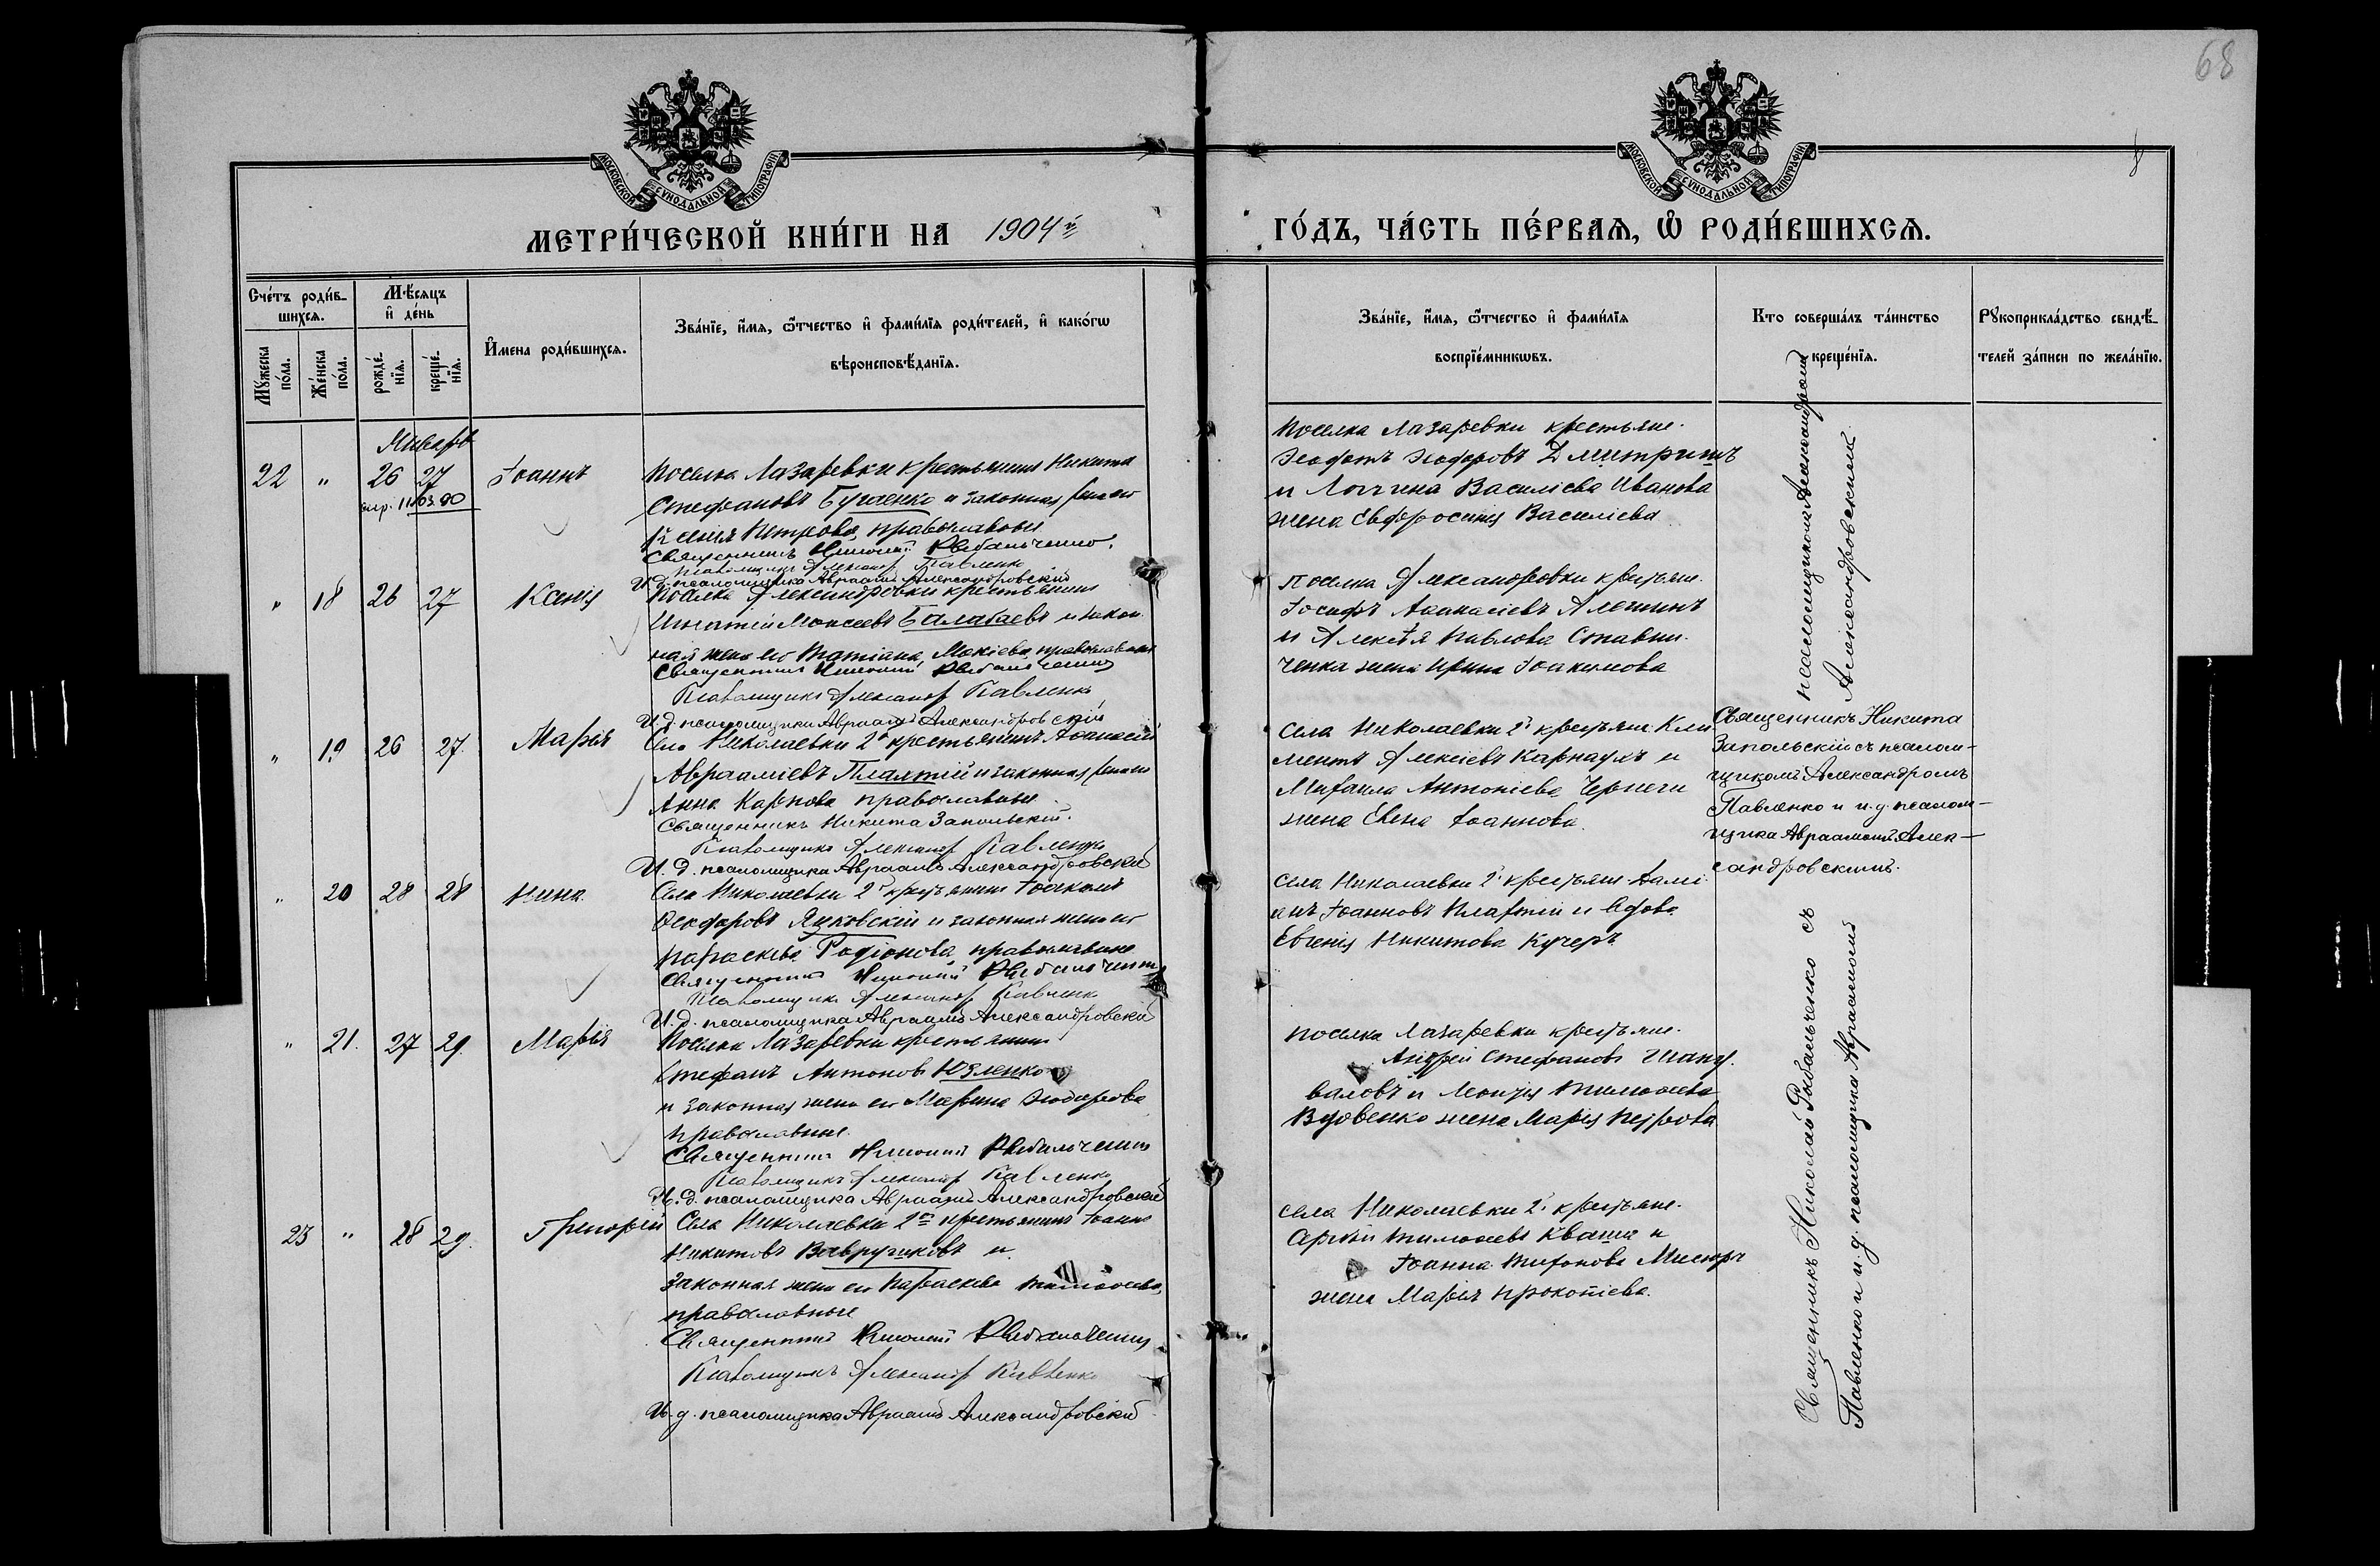 68
МОСКОВСКОЙ СѴНОДАЛЬНОЙ ТИПОГРАФІИ
МОСКОВСКОЙ СѴНОДАЛЬНОЙ ТИПОГРАФІИ
МЕТРИ́ЧЕСКОЙ КНИ́ГИ НА 1904й
ГО́ДЪ, ЧА́СТЬ ПЕ́РВАѦ, Ѽ РОДИ́ВШИХСѦ.
Сче́тъ роди́в-
шихсѧ.
Мѣ́сѧцъ
и҆ де́нь
Мꙋ́жеска
по́ла.
Же́нска
по́ла.
рожде́-
нїѧ.
креще́-
нїѧ.
И҆мена роди́вшихсѧ.
Зва́нїе, и҆́мѧ, ѻ҆́тчество и҆ фами́лїѧ роди́телей, и҆ како́гѡ
вѣроисповѣ́данїѧ.
Зва́нїе, и҆́мѧ, ѻ҆́тчество и҆ фами́лїѧ
воспрїе́мникѡвъ.
Кто соверша́лъ та́инство
креще́нїѧ.
Рꙋкоприкла́дство свидѣ́-
телей за́писи по жела́нїю.
Январь
22 " 26 27 Іоаннъ
Поселка Лазаревки крестьянинъ Никита
Стефановъ Бугаенко и законная жена его
Ксенія Петрова, православные
Священникъ Николай Рыбальченко.
Псаломщикъ Александр Павленко
И.д. псаломщика Авраамій Александровскій
Поселка Лазаревки крестьяне.
Ѳеодотъ Ѳеодоровъ
и Василіева Иванова
жена Евфросинія Василіева
" 18 26 27 Ксенія
Поселка Александровки крестьянинъ
Игнатій Моисеевъ Балабаевъ и закон-
ная жена его Татіана Мокіева, православные
Священникъ Николай Рыбальченко
Псаломщикъ Александр Павленко
И.д. псаломщика Авраамій Александровскій
Поселка Александровки крестьяне.
Іосифъ Аѳанасіевъ
и Павлова Ставни-
ченка жена Ирина Іоакимова
" 19 26 27. Марія
Села Николаевки 2й крестьянинъ Аѳанасій
Авраамієвъ Плахтій и законная жена его
Анна Карпова православные.
Священникъ Никита Запольскій.
Псаломщикъ Александр Павленко
И. д. псаломщика Авраамій Александровскій
Села Николаевки 2й крестьяне Кли-
ментъ Алексіевъ Карнаухъ и
Михаила Антоніева Чернеги
жена Елена Іоаннова.
Священникъ Никита
Запольскій съ псалом-
щикомъ Александромъ
Павленко и и. д. псалом-
щика Авраамомъ Алек-
сандровскимъ.
" 20 28 28 Нина.
Села Николаевки 2й крестьянинъ Іоакимъ
Ѳеодоровъ Яцковскій и законная жена его
Параскева Родіонова, православные
Священникъ Николай Рыбальченко
Псаломщикъ Александр Павленко
И. д. псаломщика Авраамій Александровскій
Села Николаевки 2й крестьяне Дамі-
анъ Іоанновъ Плахтій и вдова
Евгенія Никитова Кучеръ
" 21. 27 29. Марія
Поселка Лазаревки крестьянинъ
Стефанъ Антоновъ Юзленко
и законная жена его Марина Ѳеодорова
православные.
Священникъ Николай Рыбальченко
Псаломщикъ Александр Павленко
И. д. псаломщика Авраамій Александровскій
Поселка Лазаревки крестьяне.
Андрей Стефановъ Шапу-
валовъ и Тимоѳея
Вдовенко жена Марія Петрова
23 " 28 29. Григорій
Села Николаевки 2й крестьянинъ Іоаннъ
Никитовъ и
законная жена его Параскева Тимоѳеева,
православные
Священникъ Николай Рыбальченко
Псаломщикъ Александр Павленко
И. д. псаломщика Авраамій Александровскій
Села Николаевки 2й крестьяне.
Сергій Тимоѳеевъ Кваша и
Іоанна Тихонова
жена Марія Прокопіева.
Священникъ Николай Рыбальченко съ псаломщикомъ Александромъ
Павленко и и. д. псаломщика Авраамомъ Александровскимъ.